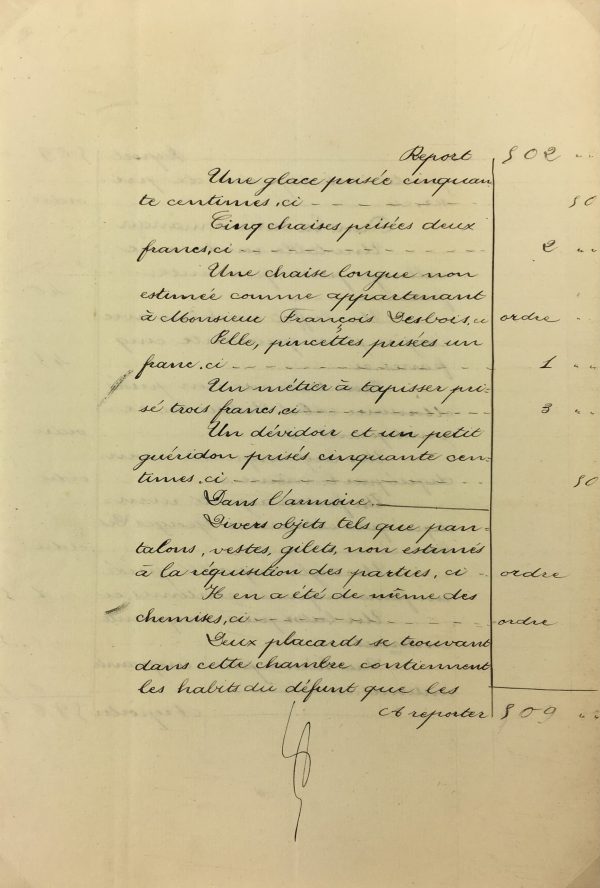 Report 502 "
Une glace prisée cinquan
te centimes, ci 50
Cinq chaises prisées deux
francs, ci 2 "
Une chaise longue non
estimée comme appartenant
à Monsieur François Desbois, ci ordre "
Pelle, pincettes prisées un
franc, ci 1 "
Un métier à tapisser pri-
sé trois francs, ci 3 "
Un dévidoir et un petit
guéridon prisés cinquante cen-
times, ci 50
Dans l'armoire.
Divers objets tels que pan-
talons, vestes, gilets, non estimés
à la réquisition des parties, ci ordre
Il en a été de même des
chemises, ci ordre
Deux placards se trouvant
dans cette chambre contiennent
les habits du défunt que les
A reporter 509 "